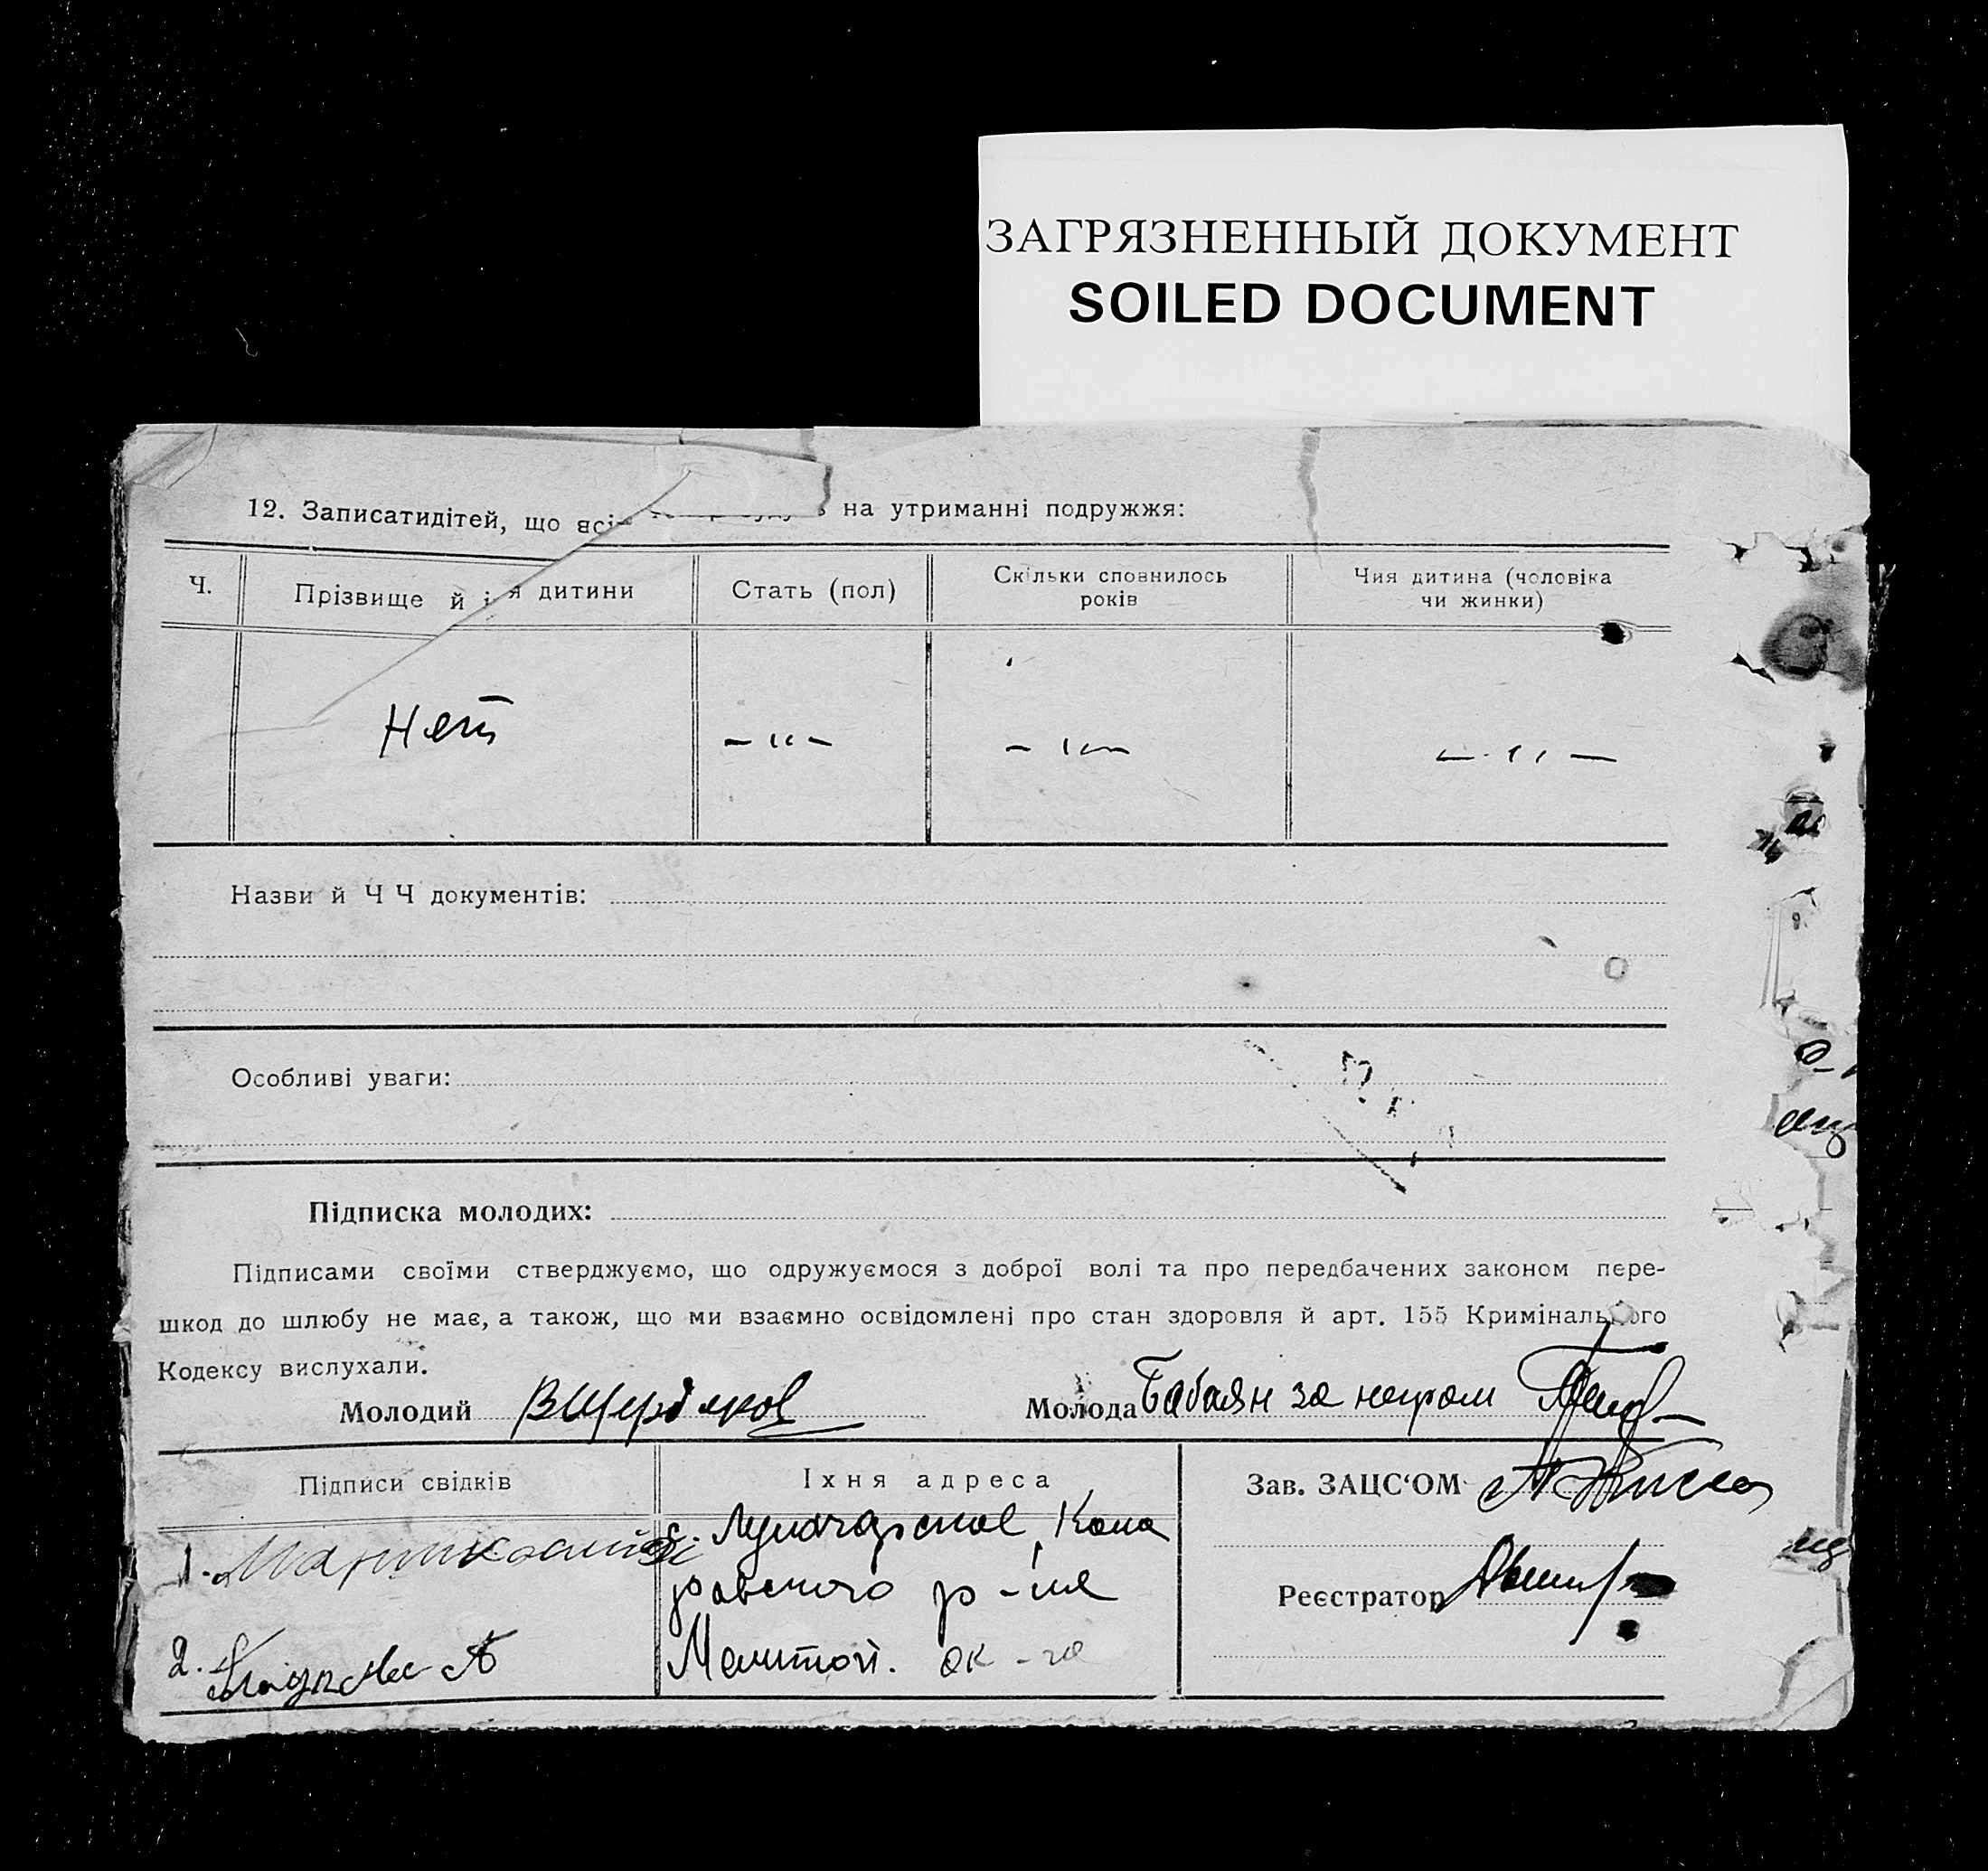 ЗАГРЯЗНЕННЫЙ ДОКУМЕНТ
SOILED DOCUMENT
12. Записатидітей, що всі на утриманні подружжя:
Ч. Прізвище й і я дитини Стать (пол) Скільки сповнилось років Чия дитина (чоловіка чи жинки)
Нет — ״ — — ״ — — ״ —
Назви й Ч Ч документів:
Особливі уваги:
Підписка молодих:
Підписами своїми стверджуємо, що одружуємося з доброї волі та про передбачених законом пере-
шкод до шлюбу не має, а також, що ми взаємно освідомлені про стан здоровля й арт. 155 Кримінального
Кодексу вислухали.
Молодий ВЩербаков Молода Бабаян за неграм
Підписи свідків Їхня адреса Зав. ЗАЦС‘ОМ
1. с. Луначарское, Кома
ровского р-на
Реєстратор
2. Мелитоп. ок-га